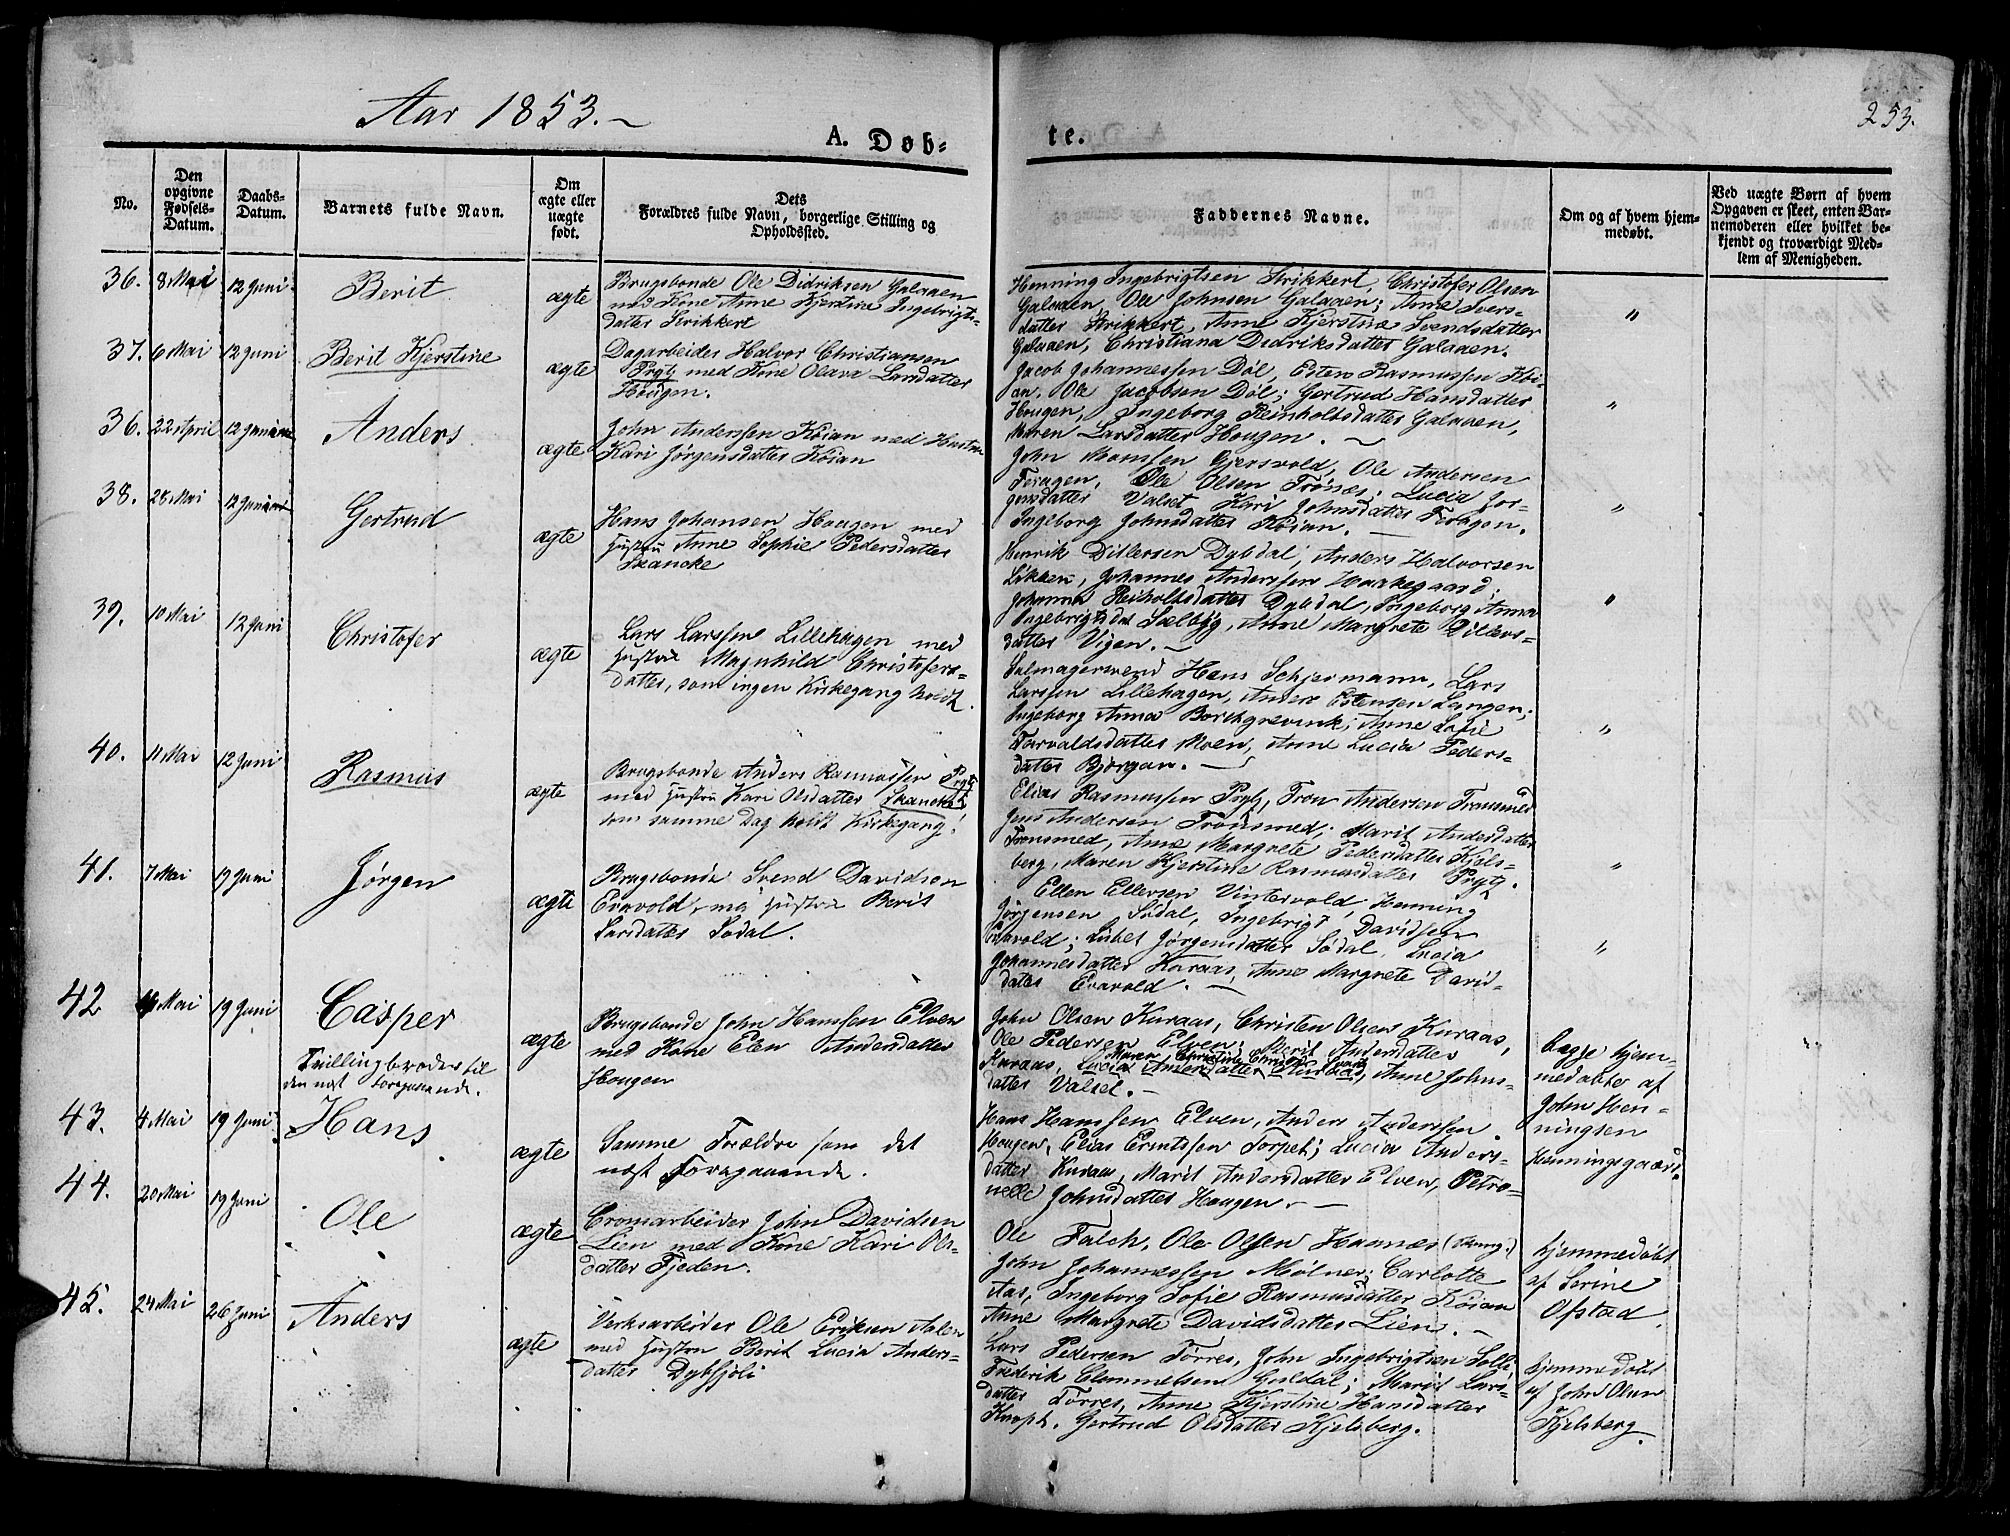 Aar 1853.
253.
A. Døb-
te.
No.
Den opgivne Fødsels-Datum.
Daabs-Datum.
Barnets fulde Navn.
Om ægte eller uægte født.
Dets Forældres fulde Navn, borgerlige Stilling og Opholdssted.
Faddernes Navne.
Om og af hvem hjem-medøbt.
Ved uægte Børn af hvem Opgaven er skeet, enten Bar-nemoderen eller hvilket be-kjendt og troværdigt Med-lem af Menigheden.
36. 8 Mai 12 Juni Berit ægte
Brugsbonde Ole Didriksen Galaaen
med Kone Anne Kjerstine Ingebrigts-
datter Strikkert
Henning Ingebrigtsen Strikkert, Christofer Olsen
Galaaen, Ole Johnsen Galaaen; Anne Ivers-
datter Strikkert, Anne Kjerstine Svendsdatter
Galaaen, Christiana Didriksdatter Galaaen.
"
37. 6 Mai 12 Juni Berit Kjerstine ægte
Dagarbeider Halvor Christiansen
Prytz med Kone Olava Larsdatter
Hougen.
Jacob Johannessen Døl, Esten Rasmussen Køi-
an, Ole Jacobsen Døl; Gertrud Hansdatter
Hougen, Ingeborg Reinholtsdatter Galaaen,
Maren Larsdatter Hougen.
"
36. 22 April 12 Juni Anders ægte
John Anderssen Køian med Hustru
Kari Jørgensdatter Køian
John Monssen Gjersvold, Ole Andersen
Feragen, Ole Olsen Trønæs; Lucia Jør-
gensdatter Valset Kari Johnsdatter Feragen.
Ingeborg Johnsdatter Køian.
"
38. 28 Mai 12 Juni Gertrud ægte
Hans Johansen Hougen med
Hustru Anne Sophie Pedersdatter
Skancke
Henrik Ditlersen Dybdal, Anders Halvorsen
Løkken, Johannes Anderssen Haakegaard,
Johanna Reiholtsdatter Dybdal, Ingeborg Anna
Ingebrigtsdat Sælbyg, Anne Margrete Ditlevs-
datter Vigen.
"
39. 10 Mai 12 Juni Christofer ægte
Lars Larssen Lillehagen med
Hustru Magnhild Christofers-
datter, som ingen Kirkegang holdt.
Salmagersvend Hans Schjermann, Lars
Larssen Lillehagen, Anders Estensen Langen;
Ingeborg Anna Borchgrevink, Anne Sofie
Torvaldsdatter Moen, Anne Lucia Peders-
datter Bjørgan.
"
40. 11 Mai 12 Juni Rasmus ægte
Brugsbonde Anders Rasmussen Prytz
med Hustru Kari Olsdatter Skancke
som samme Dag holdt Kirkegang.
Elias Rasmussen Prytz, Tron Andersen Tronsmed
Jens Andersen Tronsmed; Marit Andersdatter
Tronsmed, Anne Margrete Pedersdatter Kjels-
berg, Maren Kjerstine Rasmusdatter Prytz.
"
41. 7 Mai 19 Juni Jørgen ægte
Brugsbonde Svend Davidsen
Evavold, m. Hustru Berit
Larsdatter Sødal.
Ellen Ellersen Vintervold, Henning
Jørgensen Sødal, Ingebrigt Davidsen
Evavold; Lisbet Jørgensdatter Sødal, Lucia
Johannesdatter Kuraas, Anne Margrete David-
datter Evavold.
"
42 4 Mai 19 Juni Casper
Tvillingbroder til
den næst foregaaende.
ægte
Brugsbonde John Hanssen Elven
med Kone Elen Andersdatter
Hougen
John Olsen Kuraas, Christen Olsen Kuraas,
Ole Pedersen Elven; Berit Andersdatter
Kuraas, Lucia Andersdatter Kuraas, Anne Johns-
Maren Christine Christens
datter Valset.
Begge hjem-
medøbte af
John Hen-
ningsen
Henningsgaard.
43. 4 Mai 19 Juni Hans ægte
Samme Forældre som det
næst Foregaaende.
Hans Hanssen Elven, Anders Anderssen
Hougen, Elias Erntssen Torpet; Lucia Anders-
datter Kuraas, Marit Andersdatter Elven, Petro-
nelle Johnsdatter Hougen.
44. 20 Mai 19 Juni Ole ægte
Cromarbeider John Davidsen
Lien med Kone Kari Ols-
datter Fjeden.
Ole Falch, Ole Olsen Haanæs
John Johannessen Mølner; Carlotte
Aas, Ingeborg Sofie Rasmusdatter Køian
Anne Margrete Davidsdatter Lien.
hjemmedøbt
af Serine
Ofstad.
45. 24 Mai 26 Juni Anders ægte
Verksarbeider Ole Eriksen Aalen
med Hustru Berit Lucia Anders-
datter Dybfjøli
Lars Pedersen Tørres, John Ingebrigtsen Solli
Frederik Clemmetsen Guldal; Marit Lars-
datter Tørres, Anne Kjerstine Hansdatter
Knoph. Gertrud Olsdatter Kjelsberg.
hjemmedøbt
af John Olsen
Kjelsberg.